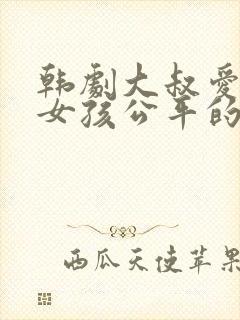 韩剧大叔爱
女孩公平的
西瓜天使苹果